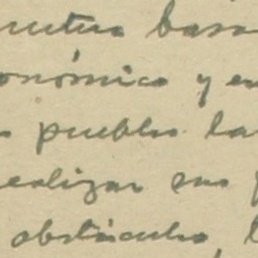 basa
onómico y en
pueblo la
ealizar sus
obstáculo,